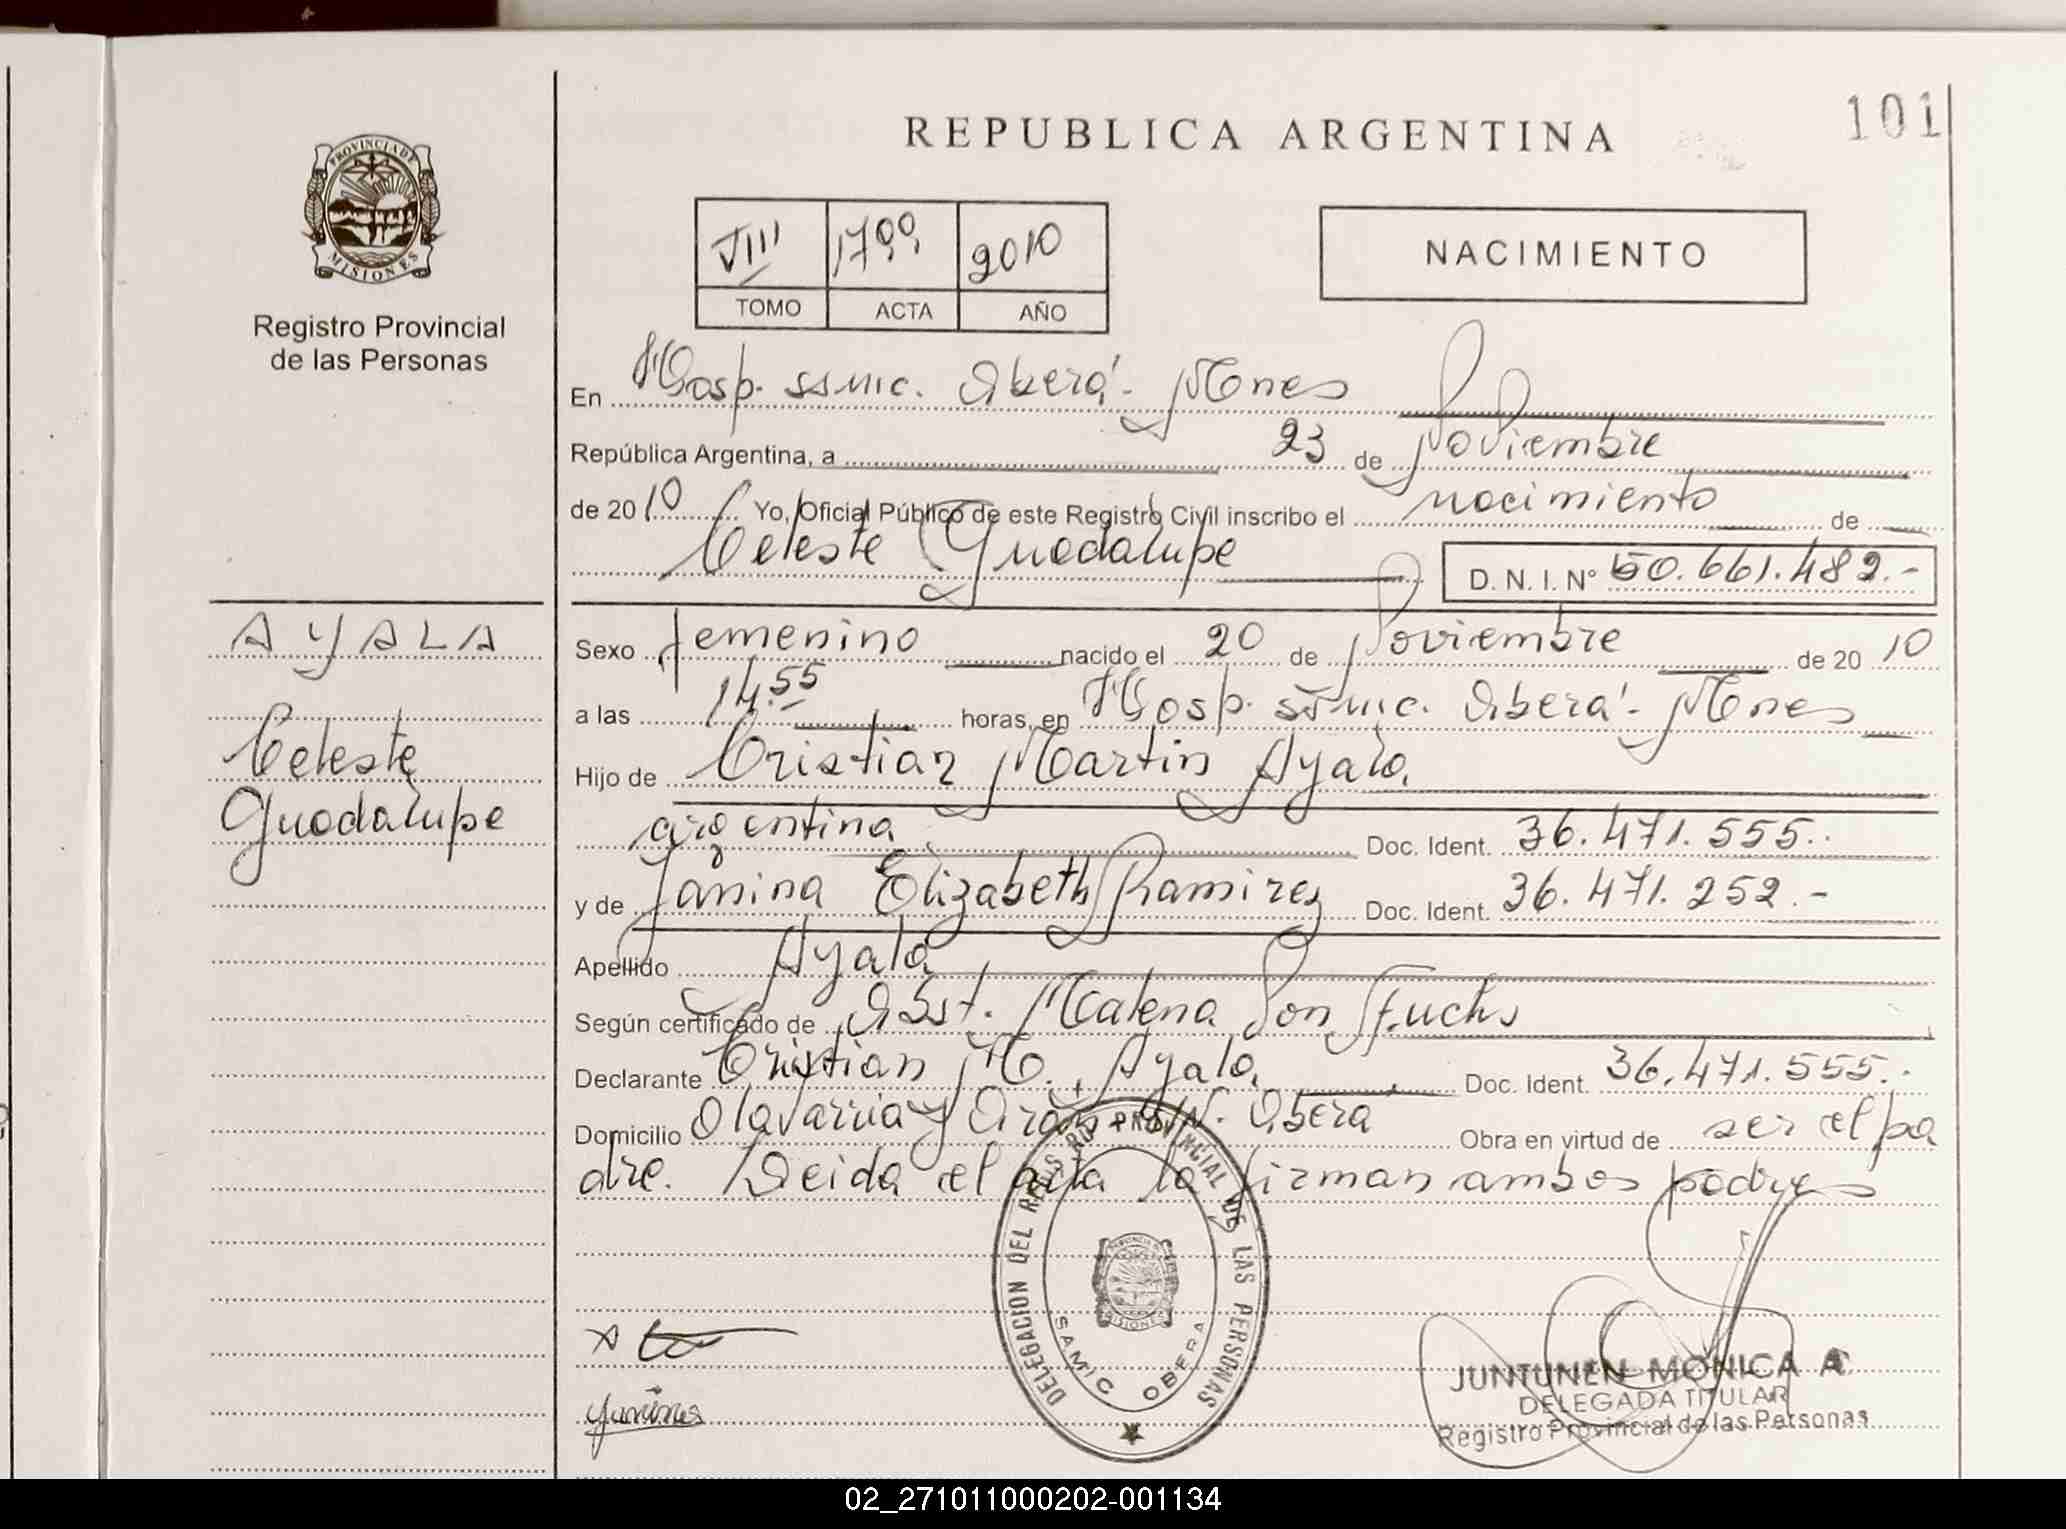 101
REPUBLICA ARGENTINA
PROVINCIA DE
MISIONES
Registro Provincial
de las Personas
VIII 1799 2010
TOMO ACTA AÑO
NACIMIENTO
En Hosp. ssmic. Oberá - Mnes
República Argentina, a 23 de Noviembre
de 2010 Yo, Oficial Público de este Registro Civil inscribo el nacimiento de
Celeste Guadalupe D. N. I. Nº 50.661.482.-
AYALA
Celeste
Guadalupe
Sexo femenino nacido el 20 de Noviembre de 2010
a las 14.55 horas, en Hosp. ssmic. Oberá - Mnes
Hijo de Cristian Martin Ayala
argentina Doc. Ident. 36.471.555.-
y de Janina Elizabeth Ramirez Doc. Ident. 36.471.252.-
Apellido Ayala
Según certificado de Obst. Malena Von Fuchs
Declarante Cristian M. Ayala Doc. Ident. 36.471.555.-
Domicilio Olavarria y S/N. Oberá Obra en virtud de ser el pa
dre. Leida el acta la firman ambos padres
DELEGACION DEL REGISTRO PROVINCIAL DE LAS PERSONAS
PROVINCIA DE
MISIONES
SAMIC OBERA
JUNTUNEN MONICA A
DELEGADA TITULAR
Registro Provincial de las Personas
02_271011000202-001134